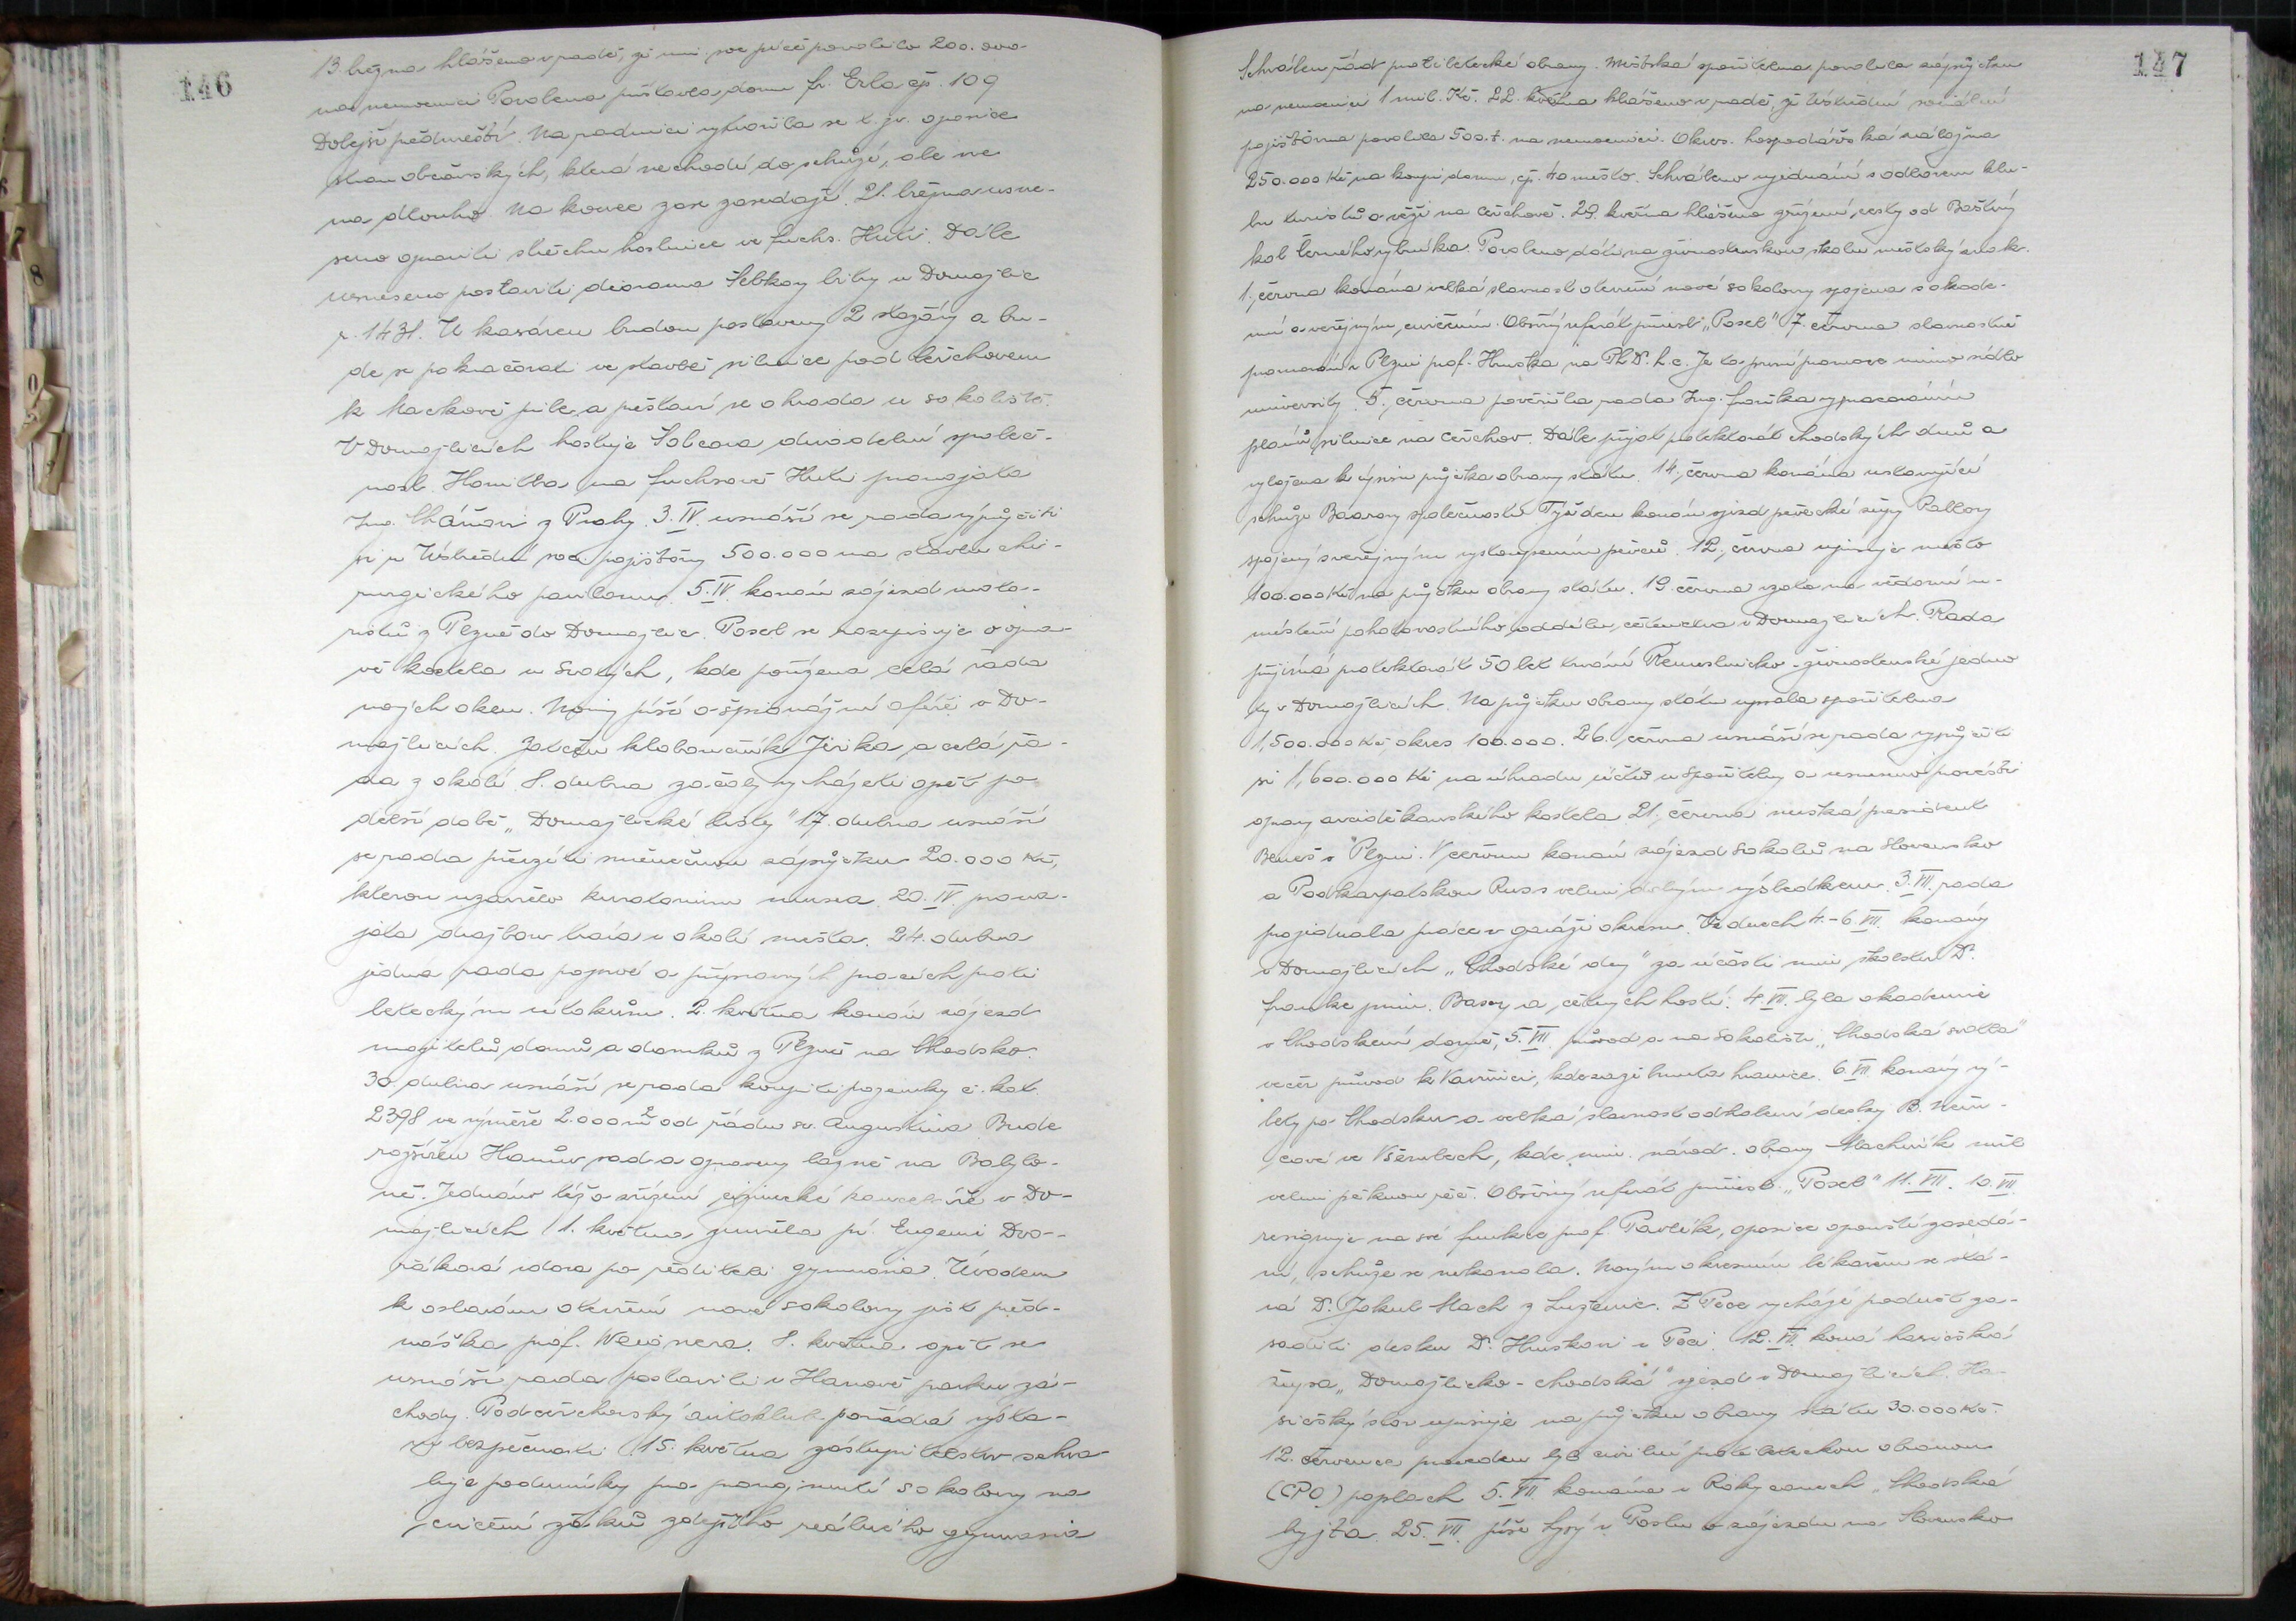 146
13. března hlášeno v radě, že min. soc. péče povolilo 200.000
na nemocnici Povolena přístavba domu fr. Erla čp. 109
Dolejší předměstí. Na radnici vytvořila se t. zv. oposice
stran občanských, která nechodí do schůzí, ale ne
na dlouho. Na konec zase zasedají. 21. března usne-
seno opraviti střechu hostince ve Fuchs. Huti. Dále
usneseno postaviti diorama Šebkovy bitvy u Domažlic
r. 1431. U kasáren budou postaveny 2 stažáry a bu-
de se pokračovati ve stavbě silnice pod Čerchovem
k Mackově pile a přistaví se ohrada u sokoliště.
V Domažlicích hostuje Šolcova divadelní společ-
nost. Hamilka na Fuchsově Huti pronajata
Ing. Cháňovi z Prahy. 3. IV. usnáší se rada výpůjčiti
si u Ústřední soc. pojišťovny 500.000 na stavbu chi-
rurgického pavilonu. 5. IV. konán zájezd moto-
ristů z Plzně do Domažlic. Posel se rozepisuje o opra-
vě kostela u Svatých, kde pořízena celá řada
nových oken. Noviny píší o špionážní aféře v Do-
mažlicích. Zatčen kloboučník Jirika, a celá řa-
da z okolí. 8. dubna začaly vycházeti opět po
delší době „Domažlické listy" 17. dubna usnáší
se rada převzíti směnečnou zápůjčku 20.000 Kč,
kterou uzavřelo kuratorium musea. 20. IV. prona-
jata dražbou tráva v okolí města. 24. dubna
jedná rada poprvé o přípravných pracích proti
leteckým útokům. 2. května konán zájezd
majitelů domů a domků z Plzně na Chodsko.
30. dubna usnáší se rada koupiti pozemky č. kat.
2398 ve výměře 2.000 m2 od řádu sv. Augustina. Bude
rozšířen Hanův sad a opraveny lázně na Babylo-
ně. Jednáno též o zřízení cizinecké kanceláře v Do-
mažlicích 1. května zemřela pí. Eugenie Dvo-
řáková vdova po řediteli gymnasia. Úvodem
k oslavám otevření nové sokolovny jest před-
náška prof. Weignera. 8. května opět se
usnáší rada postaviti v Hanově parku zá-
chody. Podčerchovský autoklub pořádá výsta-
vu bezpečnosti. 15. května zastupitelstvo schva-
luje podmínky pro pronajmutí sokolovny na
cvičení žáků zdejšího reálného gymnasia
147
Schválen řád protiletecké obrany. Městská spořitelna povolila zápůjčku
na nemocnici 1 mil. Kč. 22. května hlášeno v radě, že Ústřední sociální
pojišťovna povolila 500.t. na nemocnici. Okres. hospodářská záložna
250.000 Kč na koupi domu čp. 40 město. Schváleno ujednání s odborem klu-
bu turistů o věži na Čerchově. 29. května hlášeno zřízení cesty od Baštiny
kol Černého rybníka. Povoleno dáti na živnostenskou školu městský znak.
1. června konána velká slavnost otevření nové sokolovny spojena s akade-
mií a veřejným cvičením. Obšírný referát přinesl „Posel" 7. června slavnostně
promován v Plzni prof. Hruška na Ph Dr. h. c. Je to první promoce mimo sídlo
university. 5. června pověřila rada Ing. Fouska vypracováním
plánů silnice na Čerchov. Dále přijat protektorát chodských dnů a
vyložena k výpisu půjčka obrany státu. 14. června konána ustavující
schůze Baarovy společnosti. Týž den konán sjezd pěvecké župy Pallovy
spojený s veřejným vystoupením pěvců. 12. června upisuje město
100.000 Kč na půjčku obrany státu. 19. června vzato na vědomí u-
místění pohotovostního oddílu četnictva v Domažlicích. Rada
přijímá protektorát 50 let trvání Řemeslnicko-živnostenské jedno
ty v Domažlicích. Na půjčku obrany státu upsala spořitelna
1,500.000 Kč, okres 100.000. 26. června usnáší se rada vypůjčiti
si 1,600.000 Kč na úhradu účtů u spořitelny a usneseno provésti
opravy arciděkanského kostela. 21. června meská president
Beneš v Plzni. V červnu konán zájezd Sokolů na Slovensko
a Podkarpatskou Rus s velmi dobrým výsledkem. 3. VII. rada
projednala práce v garáži okresu. Ve dnech 4.-6 VII. konány
v Domažlicích „Chodské dny" za účasti min. školství Dr.
Franke, min. Basey a četných hostí. 4. VII. byla akademie
v Chodském domě, 5. VII. průvod a na Sokolišti „Chodská svatba"
večer průvod k Vavřinci, kde zažehnuta hranice. 6. VII. konány vý-
lety po Chodsku a velká slavnost odhalení desky B. Něm-
cové ve Všerubech, kde min. národ. obrany Machník měl
velmi pěknou řeč. Obšírný referát přinesl „Posel" 11. VII. 10. VII.
resignuje na své funkce prof. Pavlík, oposice opouští zasedá-
ní, schůze se nekonala. Novým okresním lékařem se stá-
vá Dr. Jakub Mach z Luženic. Z Pece vychází podnět za-
saditi desku Dr. Hruškovi v Peci. 12. VII. koná hasičská
župa „Domažlicko-chodská" sjezd v Domažlicích. Ha-
sičský sbor upisuje na půjčku obrany státu 30.000 Kč.
12. července proveden byl civilní protileteckou obranou
(CPO) poplach 5. VII. konána v Rokycanech „Chodská
byjta. 25. VII. píše Lysý v Poslu o zájezdu na Slovensko